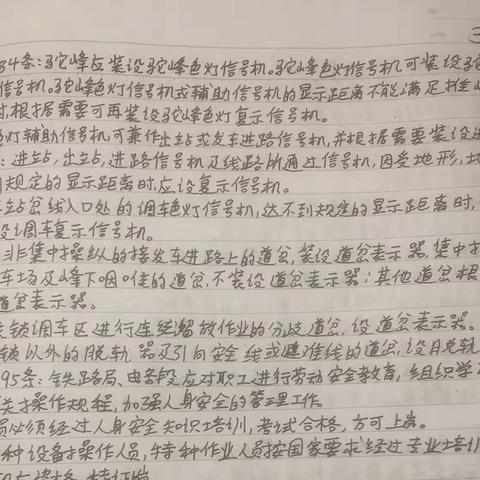 3
34条:驼峰应装设驼峰色灯信号机。驼峰色灯信号机可装设驼
信号机。驼峰色灯信号机或辅助信号机的显示距离不能满足推峰
时,根据需要可再装设驼峰色灯复示信号机。
色灯辅助信号机,可兼作出站或发车进路信号机,并根据需要装设进
:进站,出站,进路信号机及线路所通过信号机,因受地形,地
到规定的显示距离时,应设复示信号机。
车站岔线入口处的调车色灯信号机,达不到规定的显示距离时,
设调车复示信号机。
非集中操纵的接发车进路上的道岔,装设道岔表示器,集中操
车场及峰下咽喉的道岔,不装设道岔表示器;其他道岔根
道岔表示器。
关锁调车区进行连续溜放作业的分歧道岔,设道岔表示器。
锁以外的脱轨器及引向安全线或避难线的道岔,设脱轨
95条:铁路局、电务段应对职工进行劳动安全教育,组织学习
关操作规程,加强人身安全的管理工作。
员必须经过人身安全知识培训,考试合格,方可上岗。
种设备操作人员,特种作业人员按国家要求经过专业培训